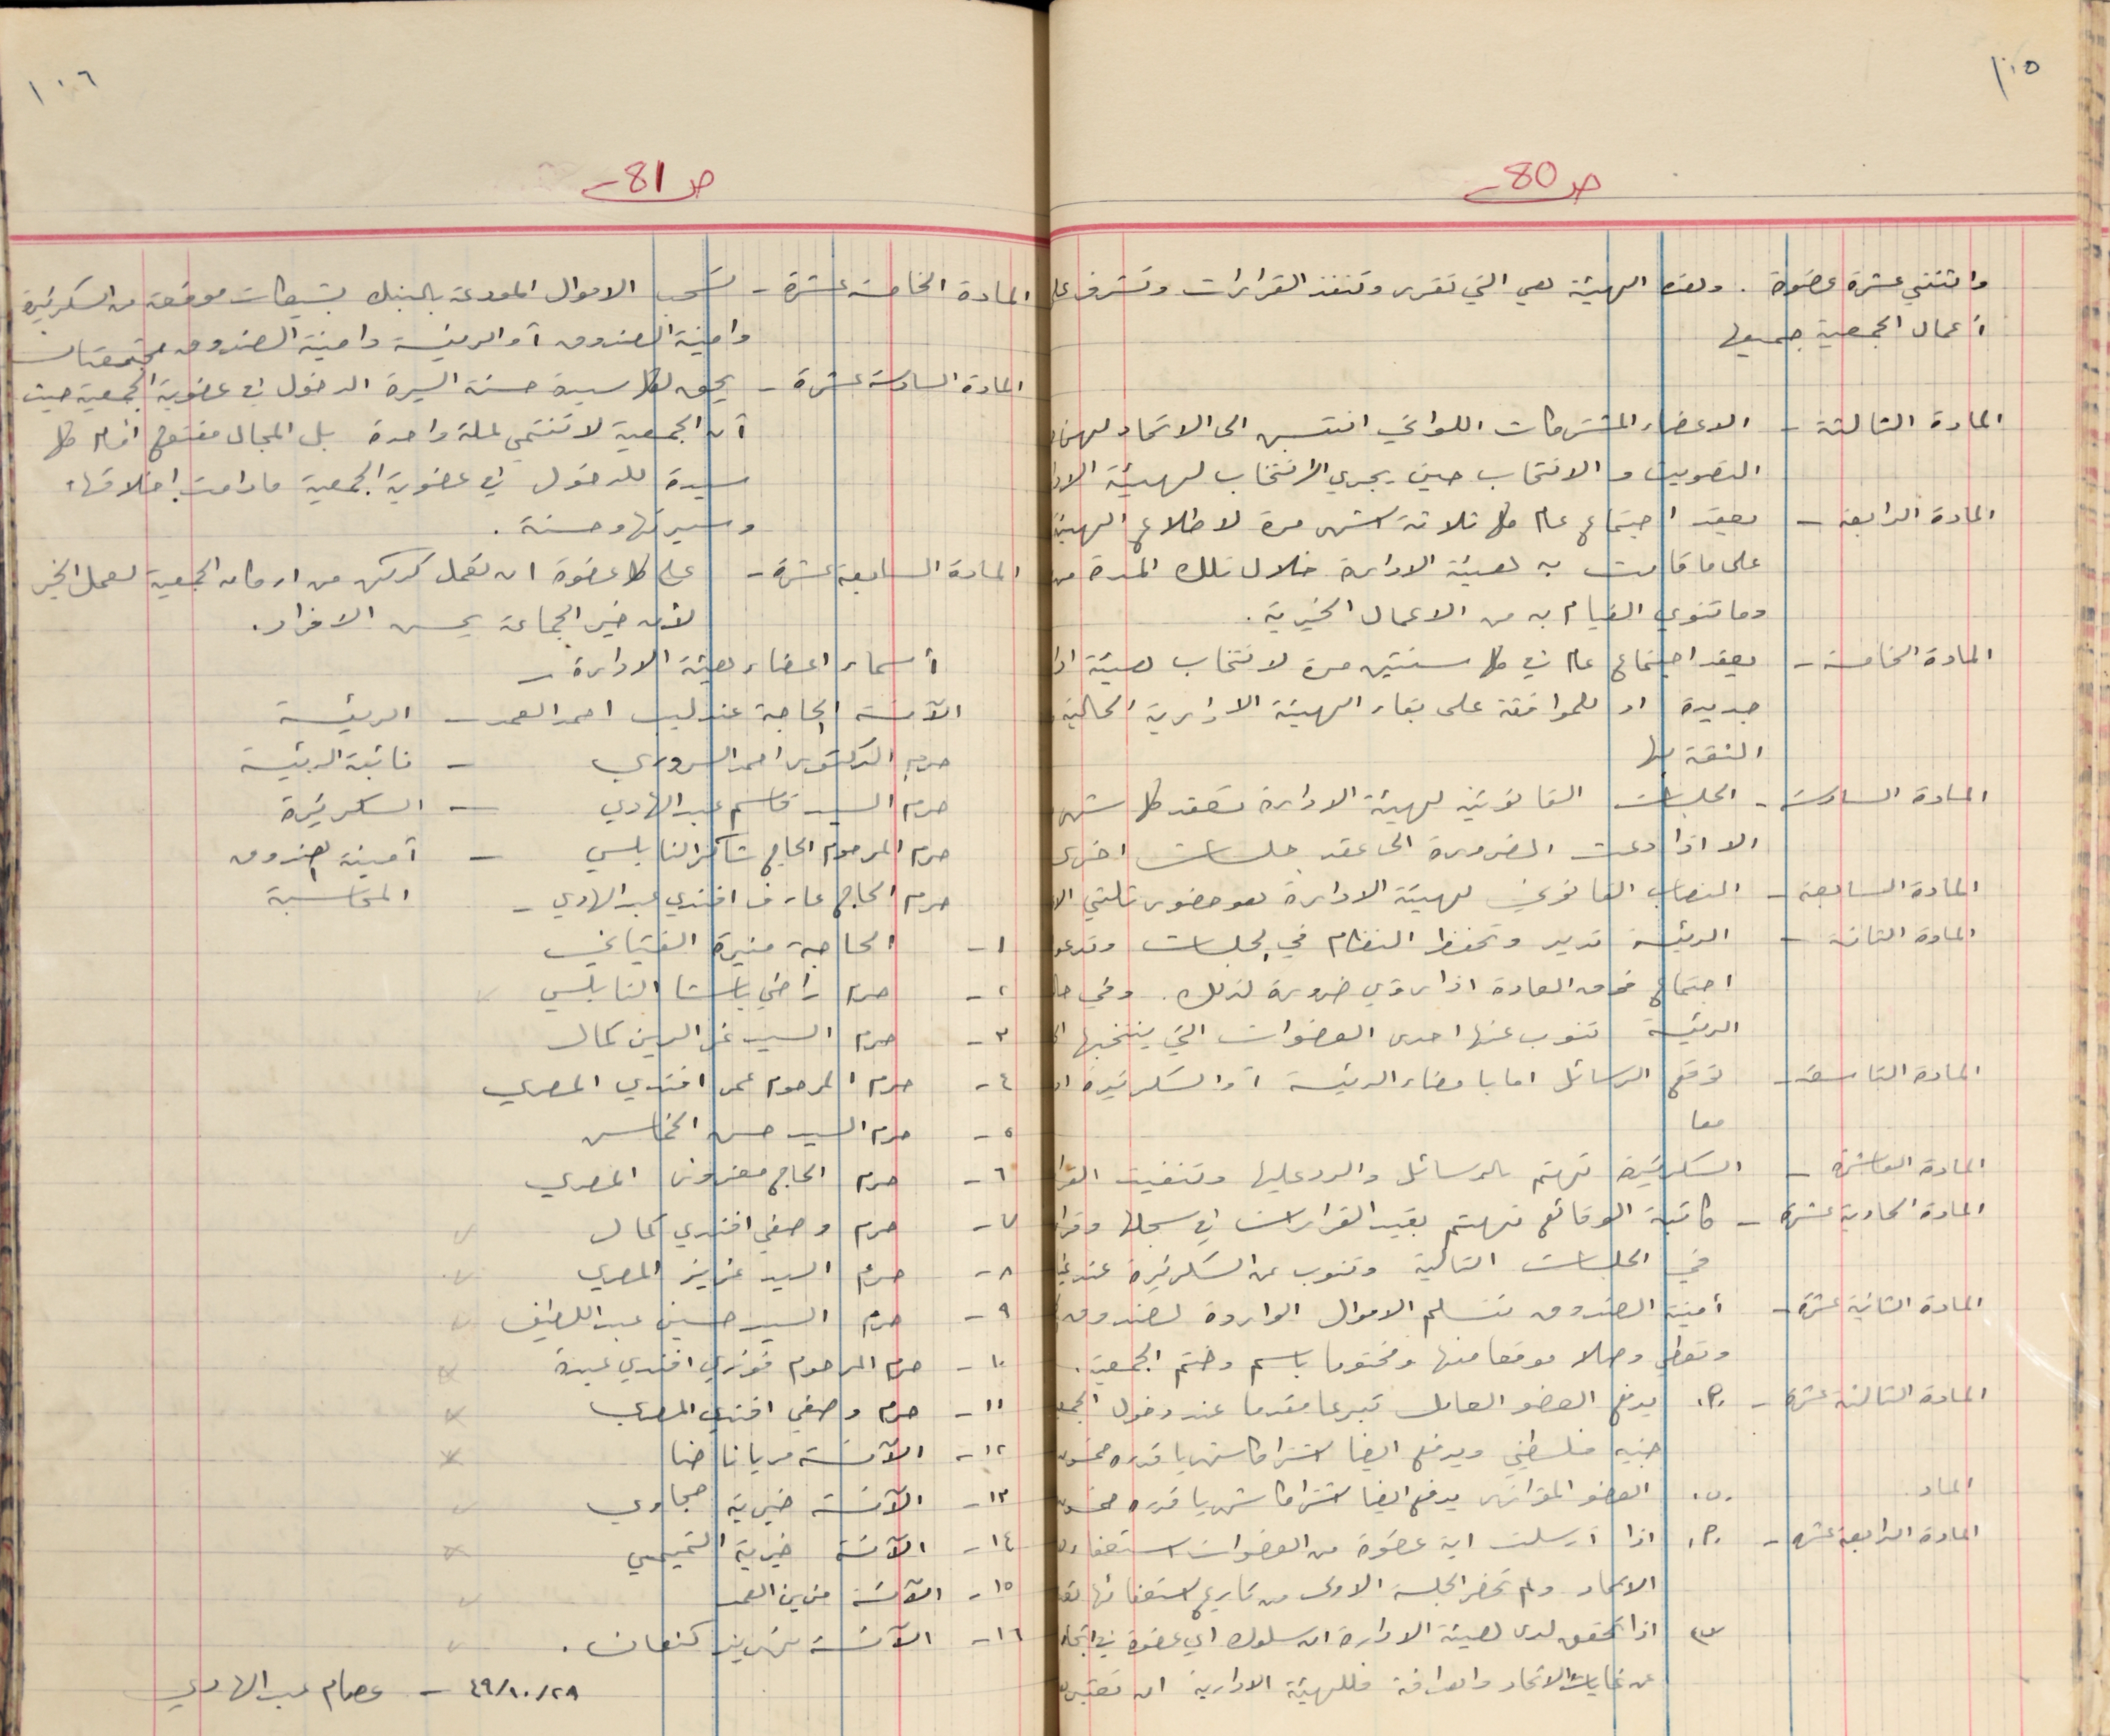 ١٠٥
ص 80
واثنتي عشرة عضوة . وهذه الهيئة هي التي تقرر وتنفذ القرارات وتشرف على
أعمال الجمعية جميعها
المادة الثالثة - الاعضاء المشتركات اللواتي انتسبن الى الاتحاد لهن
التصويت والانتخاب حين يجري الانتخاب لهيئة
المادة الرابعة - يعقد اجتماع عام كل ثلاثة اشهر مرة لاطلاع الهيئة
على ما قامت به هيئة الادارة خلال تلك المدة من
وما تنوي القيام به من الاعمال الخيرية .
المادة الخامسة - يعقد اجتماع عام في كل سنتين مرة لانتخاب هيئة
جديدة او للموافقة على بقاء الهيئة الادارية الحالية
الثقة بها
المادة السادسة - الجلسات القانونية لهيئة الادارة تعقد كل شهر
الا اذا دعت الضرورة الى عقد جلسات اخرى
المادة السابعة - النصاب القانوني لهيئة الادارة هو حضور ثلثي
المادة الثامنة - الرئيسة تدير وتحفظ النظام في الجلسات وتدعو
اجتماع فوق العادة اذا رؤي ضرورة لذلك . وفي
الرئيسة تنوب عنها احدى العضوات التي ينتخبها
المادة التاسعة - توقع الرسائل اما بامضاء الرئيسة أو السكرتيرة
معا
المادة العاشرة - السكرتيرة تهتم بالرسائل والرد عليها وتنفيذ
المادة الحادية عشرة - كاتبة الوقائع تهتم بقيد القرارات في سجلها
في الجلسات التالية وتنوب عن السكرتيرة عند
المادة الثانية عشرة - أمينة الصندوق تتسلم الاموال الواردة لصندوق
وتعطي وصلا موقعا منها ومختوما باسم وختم الجمعية .
المادة الثالثة عشرة - .م. يدفع العضو العامل تبرعا مقدما عند دخول
جنيه فلسطيني ويدفع ايضا اشتراكا شهريا قدره خمسون
الماد .ن. العضو المؤازر يدفع ايضا اشتراكا شهريا قدره خمسون
المادة الرابعة عشرة - .م. اذا أرسلت اية عضوة من العضوات استعفاء
الاتحاد ولم تحضر الجلسة الاولى من تاريخ استعفائها
اذا تحقق لدى هيئة الادارة ان سلوك اي عضوة في
عن غايات الاتحاد واهدافه فللهيئة الادارية ان تعتبر
١٠٦
ص 81
المادة الخامسة عشرة - تسحب الاموال المودعة بالبنك بشيكات موقعة من السكرتيرة
وامينة الصندوق أو الرئيسة وامينة الصندوق مجتمعتان
المادة السادسة عشرة - يحق لكل سيدة حسنة السيرة الدخول في عضوية الجمعية حيث
أن الجمعية لا تنتمي لملة واحدة بل المجال مفتوح امام كل
سيدة للدخول في عضوية الجمعية ما دامت اخلاقها
وسيرتها حسنة .
المادة السابعة عشرة - على كل عضوة ان تعمل كركن من اركان الجمعية لعمل الخير
لأن خير الجماعة يحسن الافراد .
أسماء اعضاء هيئة الادارة -
الآنسة الحاجة عندليب احمد العمد - الرئيسة
حرم الدكتور احمد السروري - نائبة الرئيسة
حرم السيد قاسم عبد الهادي - السكرتيرة
حرم المرحوم الحاج شاكر النابلسي - أمينة الصندوق
حرم الحاج عارف افندي عبد الهادي - المحاسبة
١- الحاجة منيرة الفتياني
٢- حرم راضي باشا النابلسي
٣- حرم السيد عز الدين كمال
٤- حرم المرحوم عمر افندي المصري
٥- حرم السيد حسن الخماش
٦- حرم الحاج معزوز المصري
٧- حرم وصفي افندي كمال
٨- حرم السيد عزيز المصري
٩- حرم السيد حسين عبد اللطيف
١٠- حرم المرحوم فوزي افندي عبده
١١- حرم وصفي افندي المصري
١٢- الآنسة مريانا حنا
١٣- الآنسة خيرية حجاوي
١٤- الآنسة خيرية التميمي
١٥- الآنسة مزين العمد
١٦- الآنسة نهريز كنعان .
٤٩/١٠/٢٨ - عصام عبد الهادي